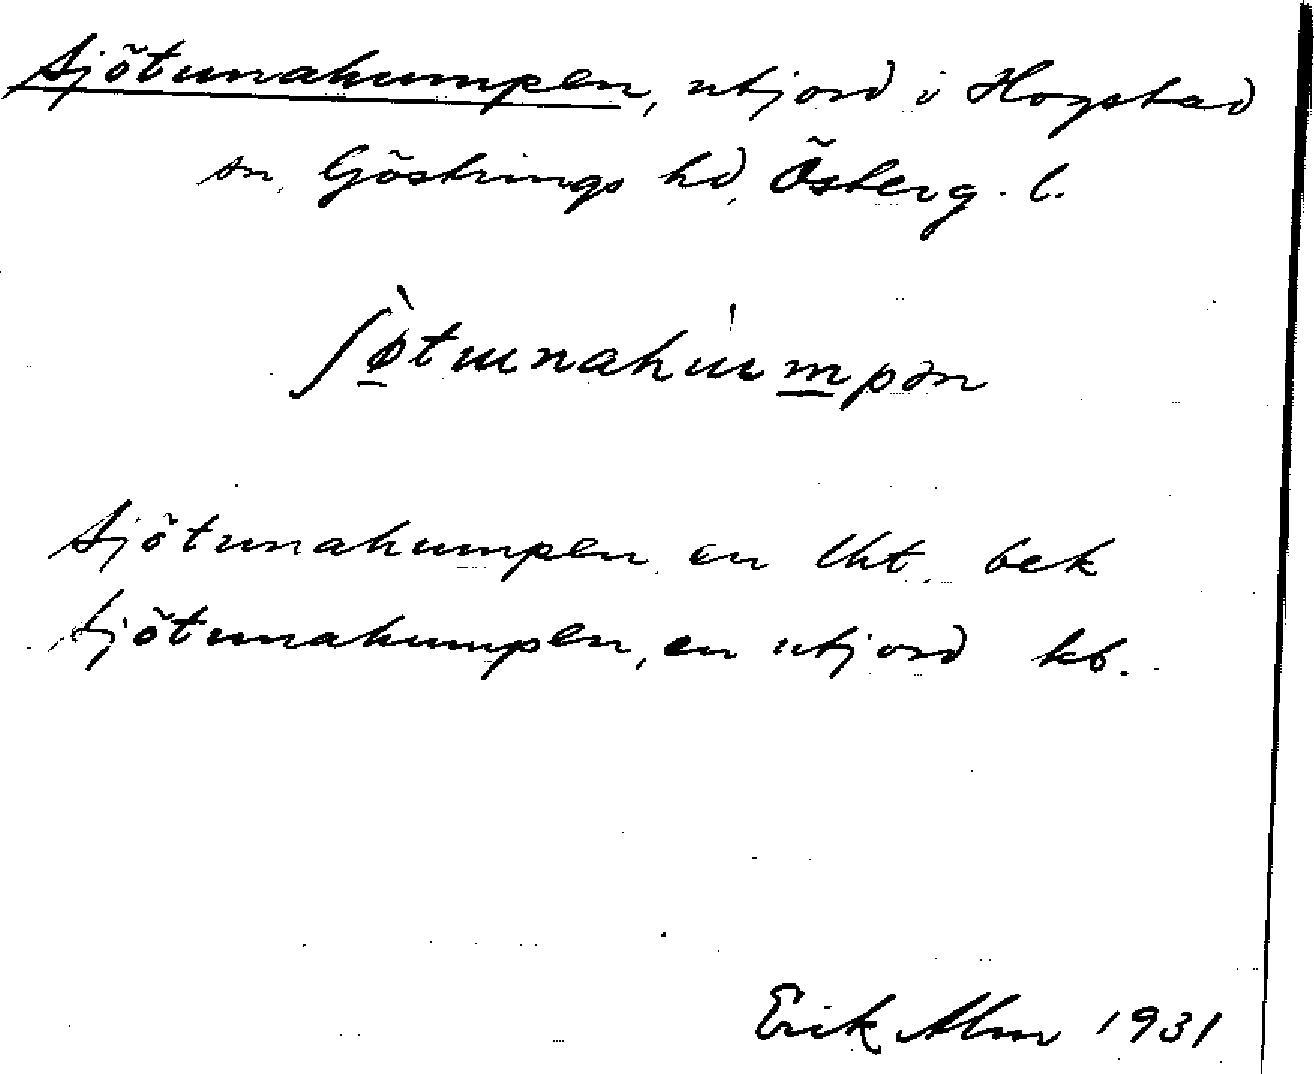 Sjötunahumpen, utjord i Hogstad
sn, Göstrings hd, Österg. l.
ʃø̠̀tɯnahɯ̀m̠pən
Sjötunahumpen en lht. bek
Sjötunahumpen, en utjord kb.
Erik Alm 1931